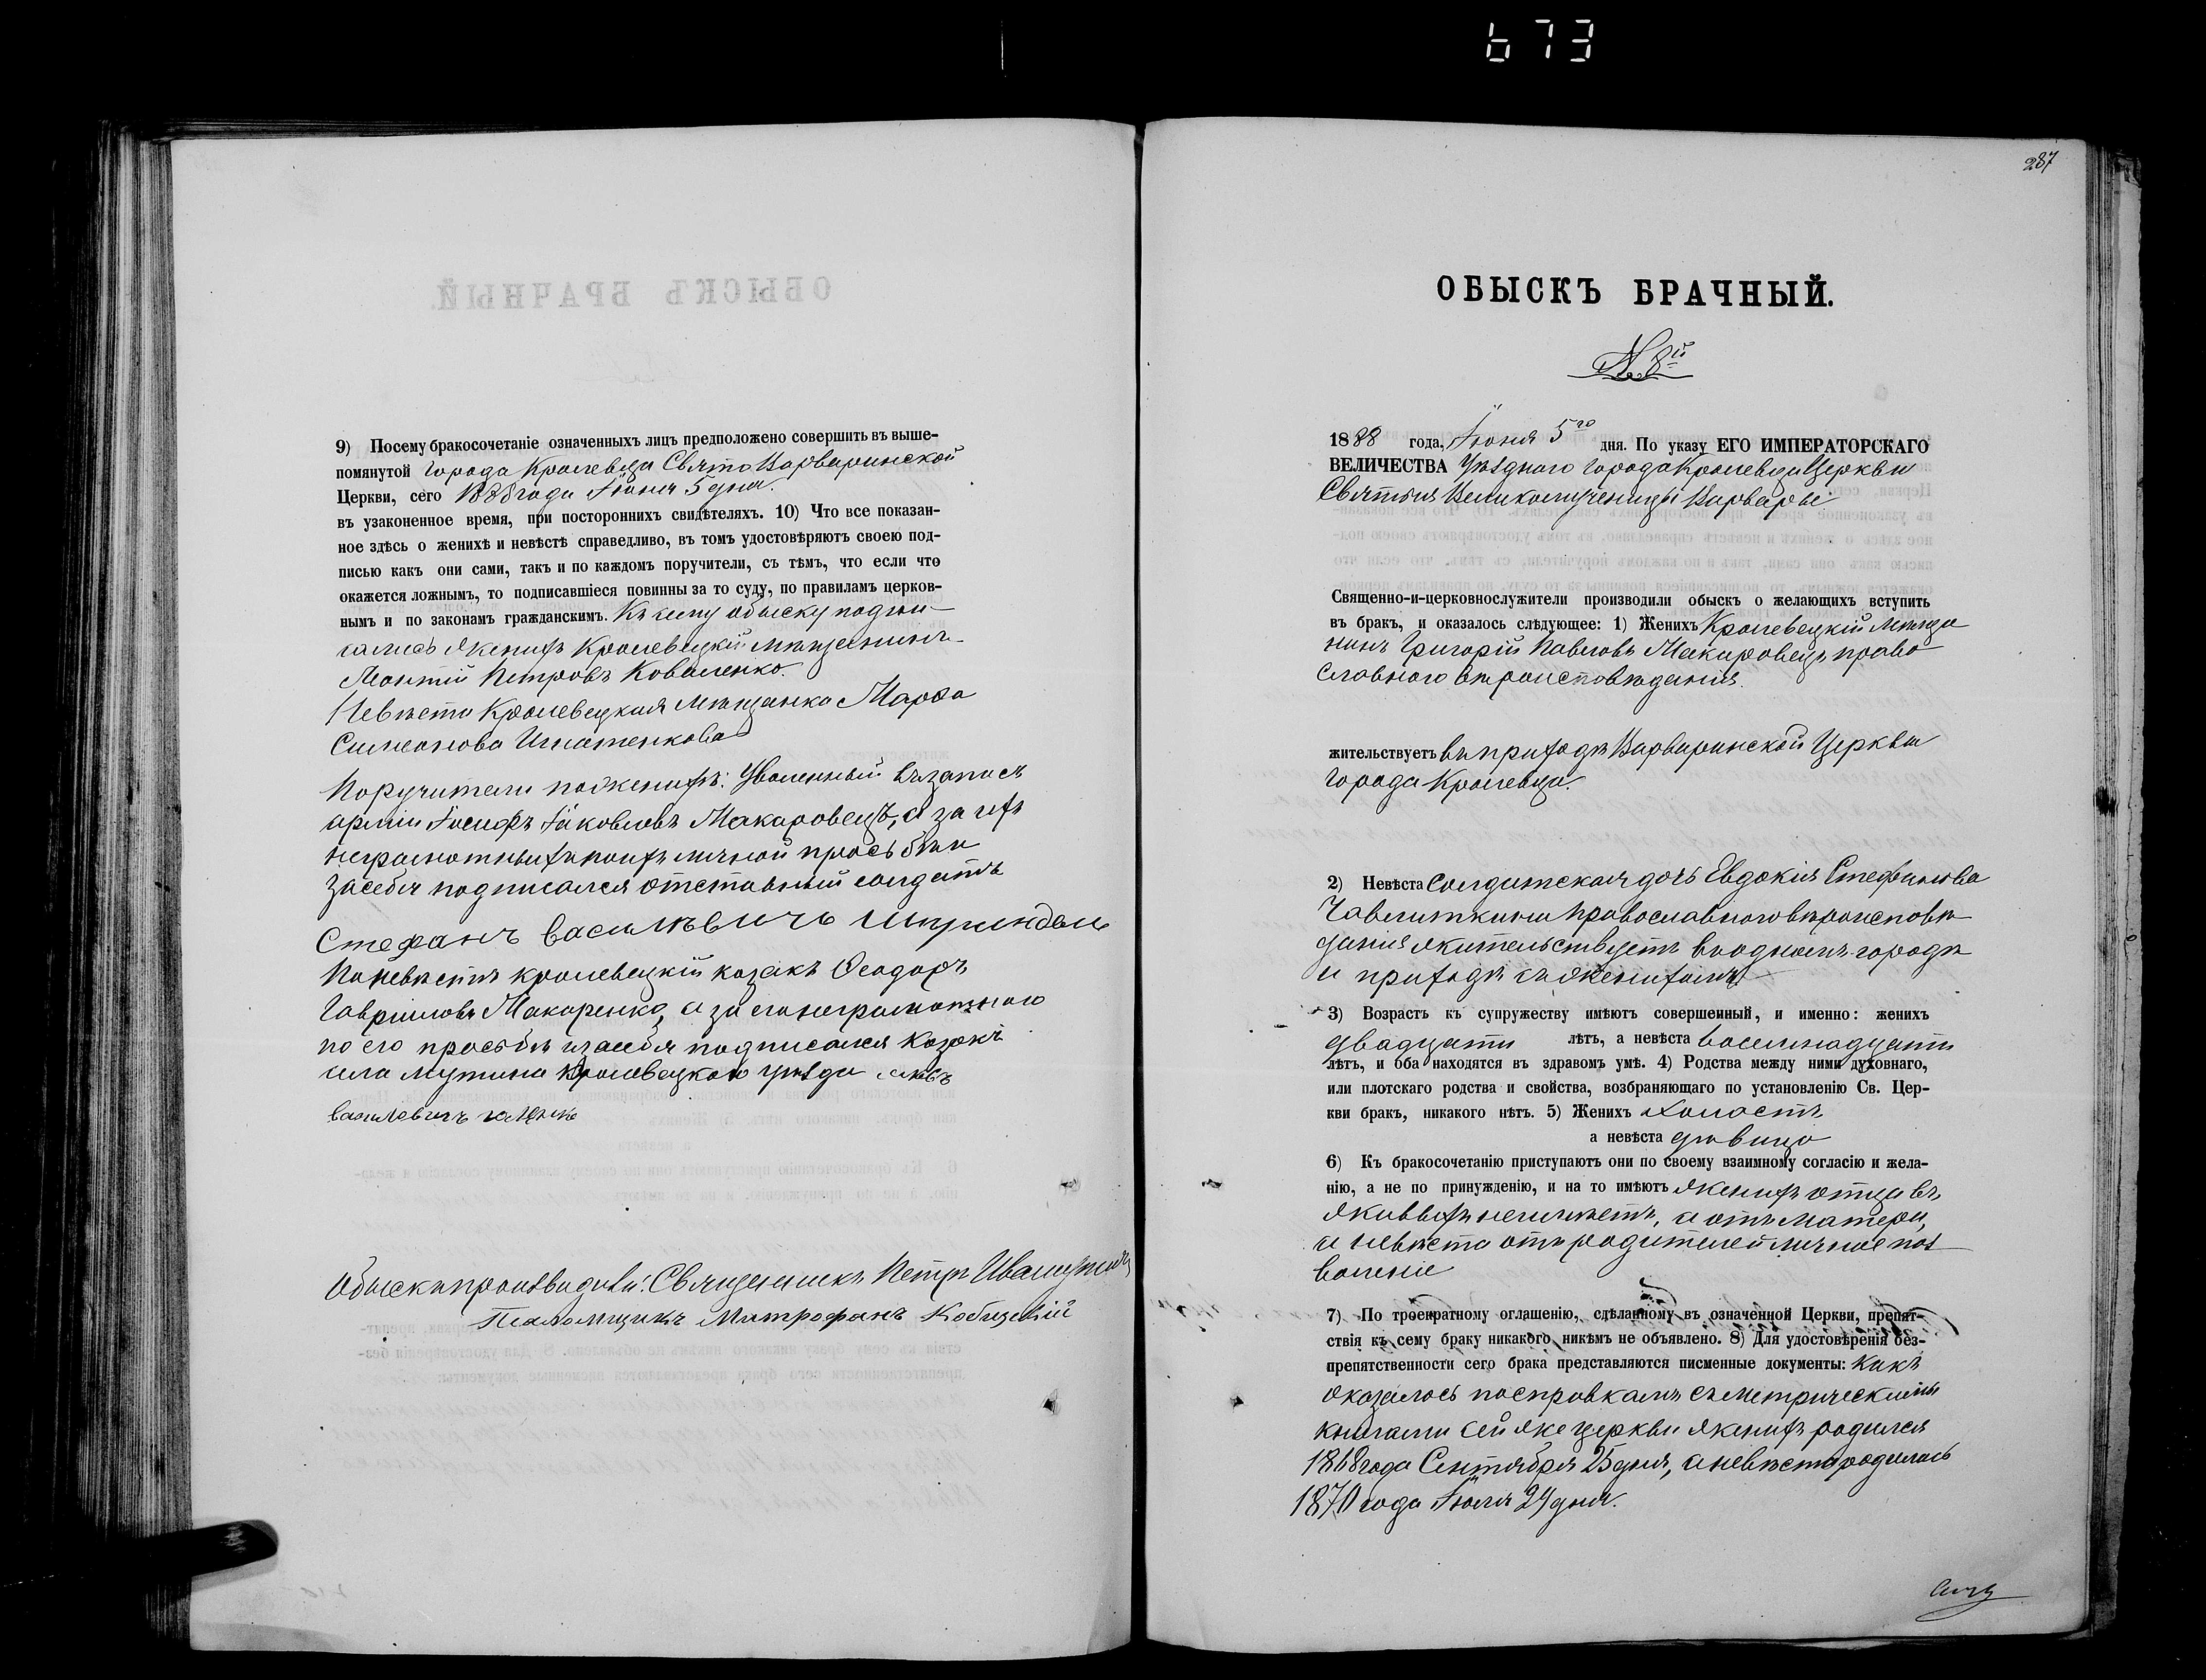 673
9) Посему бракосочетаніе означенныхъ лицъ предположено совершить въ выше-
помянутой города Кролевца Свято Варваринской
Церкви, сего 1888 года Іюня 5 дня.
въ узаконенное время, при постороннихъ свидѣтеляхъ. 10) Что все показан-
ное здѣсь о женихѣ и невѣстѣ справедливо, въ томъ удостовѣряютъ своею под-
писью какъ они сами, такъ и по каждомъ поручители, съ тѣмъ, что если что
окажется ложнымъ, то подписавшіеся повинны за то суду, по правиламъ церков-
нымъ и по законамъ гражданскимъ. Къ сему обыску подпи-
сались женихъ Кролевецкій мѣщанинъ
Леонтій Петровъ Коваленко.
Невѣста Кролевецкая мѣщанка Марфа
Симеонова Игнатенкова
Поручители по женихѣ: Уволенный въ запасъ
арміи Іосифъ Іаковлевъ Макаровецъ, а за ихъ
неграмотныхъ по ихъ личной прозьбѣ и
за себя подписался отставный солдатъ
Стефанъ Васильевичъ
По невѣстѣ кролевецкій козакъ Ѳеодоръ
Гавриловъ Макаренко, а за его неграмотнаго
по его прозьбѣ и за себя подписался Козакъ
села Мутина Кролевецкого уѣзда
василевичъ
Обыскъ производили: Священникъ Петръ
Псаломщикъ Митрофанъ Кобищскій
287
ОБЫСКЪ БРАЧНЫЙ.
№ 8й
1888 года, Іюня 5го дня. По указу ЕГО ИМПЕРАТОРСКАГО
ВЕЛИЧЕСТВА Уѣзднаго города Кролевца Церкви
Святыя Великомученицы Варвары.
Священно-и-церковнослужители производили обыскъ о желающихъ вступить
въ бракъ, и оказалось слѣдующее: 1) Женихъ Кролевецкій мѣща
нинъ Григорій Павловъ Макаровецъ право
славного вѣроисповѣданія.
жительствуетъ въ приходѣ Варваринской Церкви
города Кролевца.
2) Невѣста Солдатская дочь Евдокія Стефанова
православного вѣроисповѣ
данія жительствуетъ въ одномъ городѣ
и приходѣ съ женихомъ
3) Возрастъ къ супружеству имѣютъ совершенный, и именно: женихъ
двадцати лѣтъ, а невѣста восемнадцати
лѣтъ, и оба находятся въ здравомъ умѣ. 4) Родства между ними духовнаго,
или плотскаго родства и свойства, возбраняющаго по установленію Св. Цер-
кви бракъ, никакого нѣтъ. 5) Женихъ холостъ
а невѣста дѣвица
6) Къ бракосочетанію приступаютъ они по своему взаимному согласію и жела-
нію, а не по принужденію, и на то имѣютъ женихъ отца въ
живыхъ неимѣетъ, а отъ матери,
а невѣста отъ родителей личное поз
воленіе
7) По троекратному оглашенію, сдѣланному въ означенной Церкви, препят-
ствія къ сему браку никакого никѣмъ не объявлено. 8) Для удостовѣренія без-
препятственности сего брака представляются писменные документы: какъ
оказалось по справкамъ съ метрическими
книгами сей же церкви женихъ родился
1868 года Сентября 25 дня, а невѣста родилась
1870 года Іюля 24 дня.